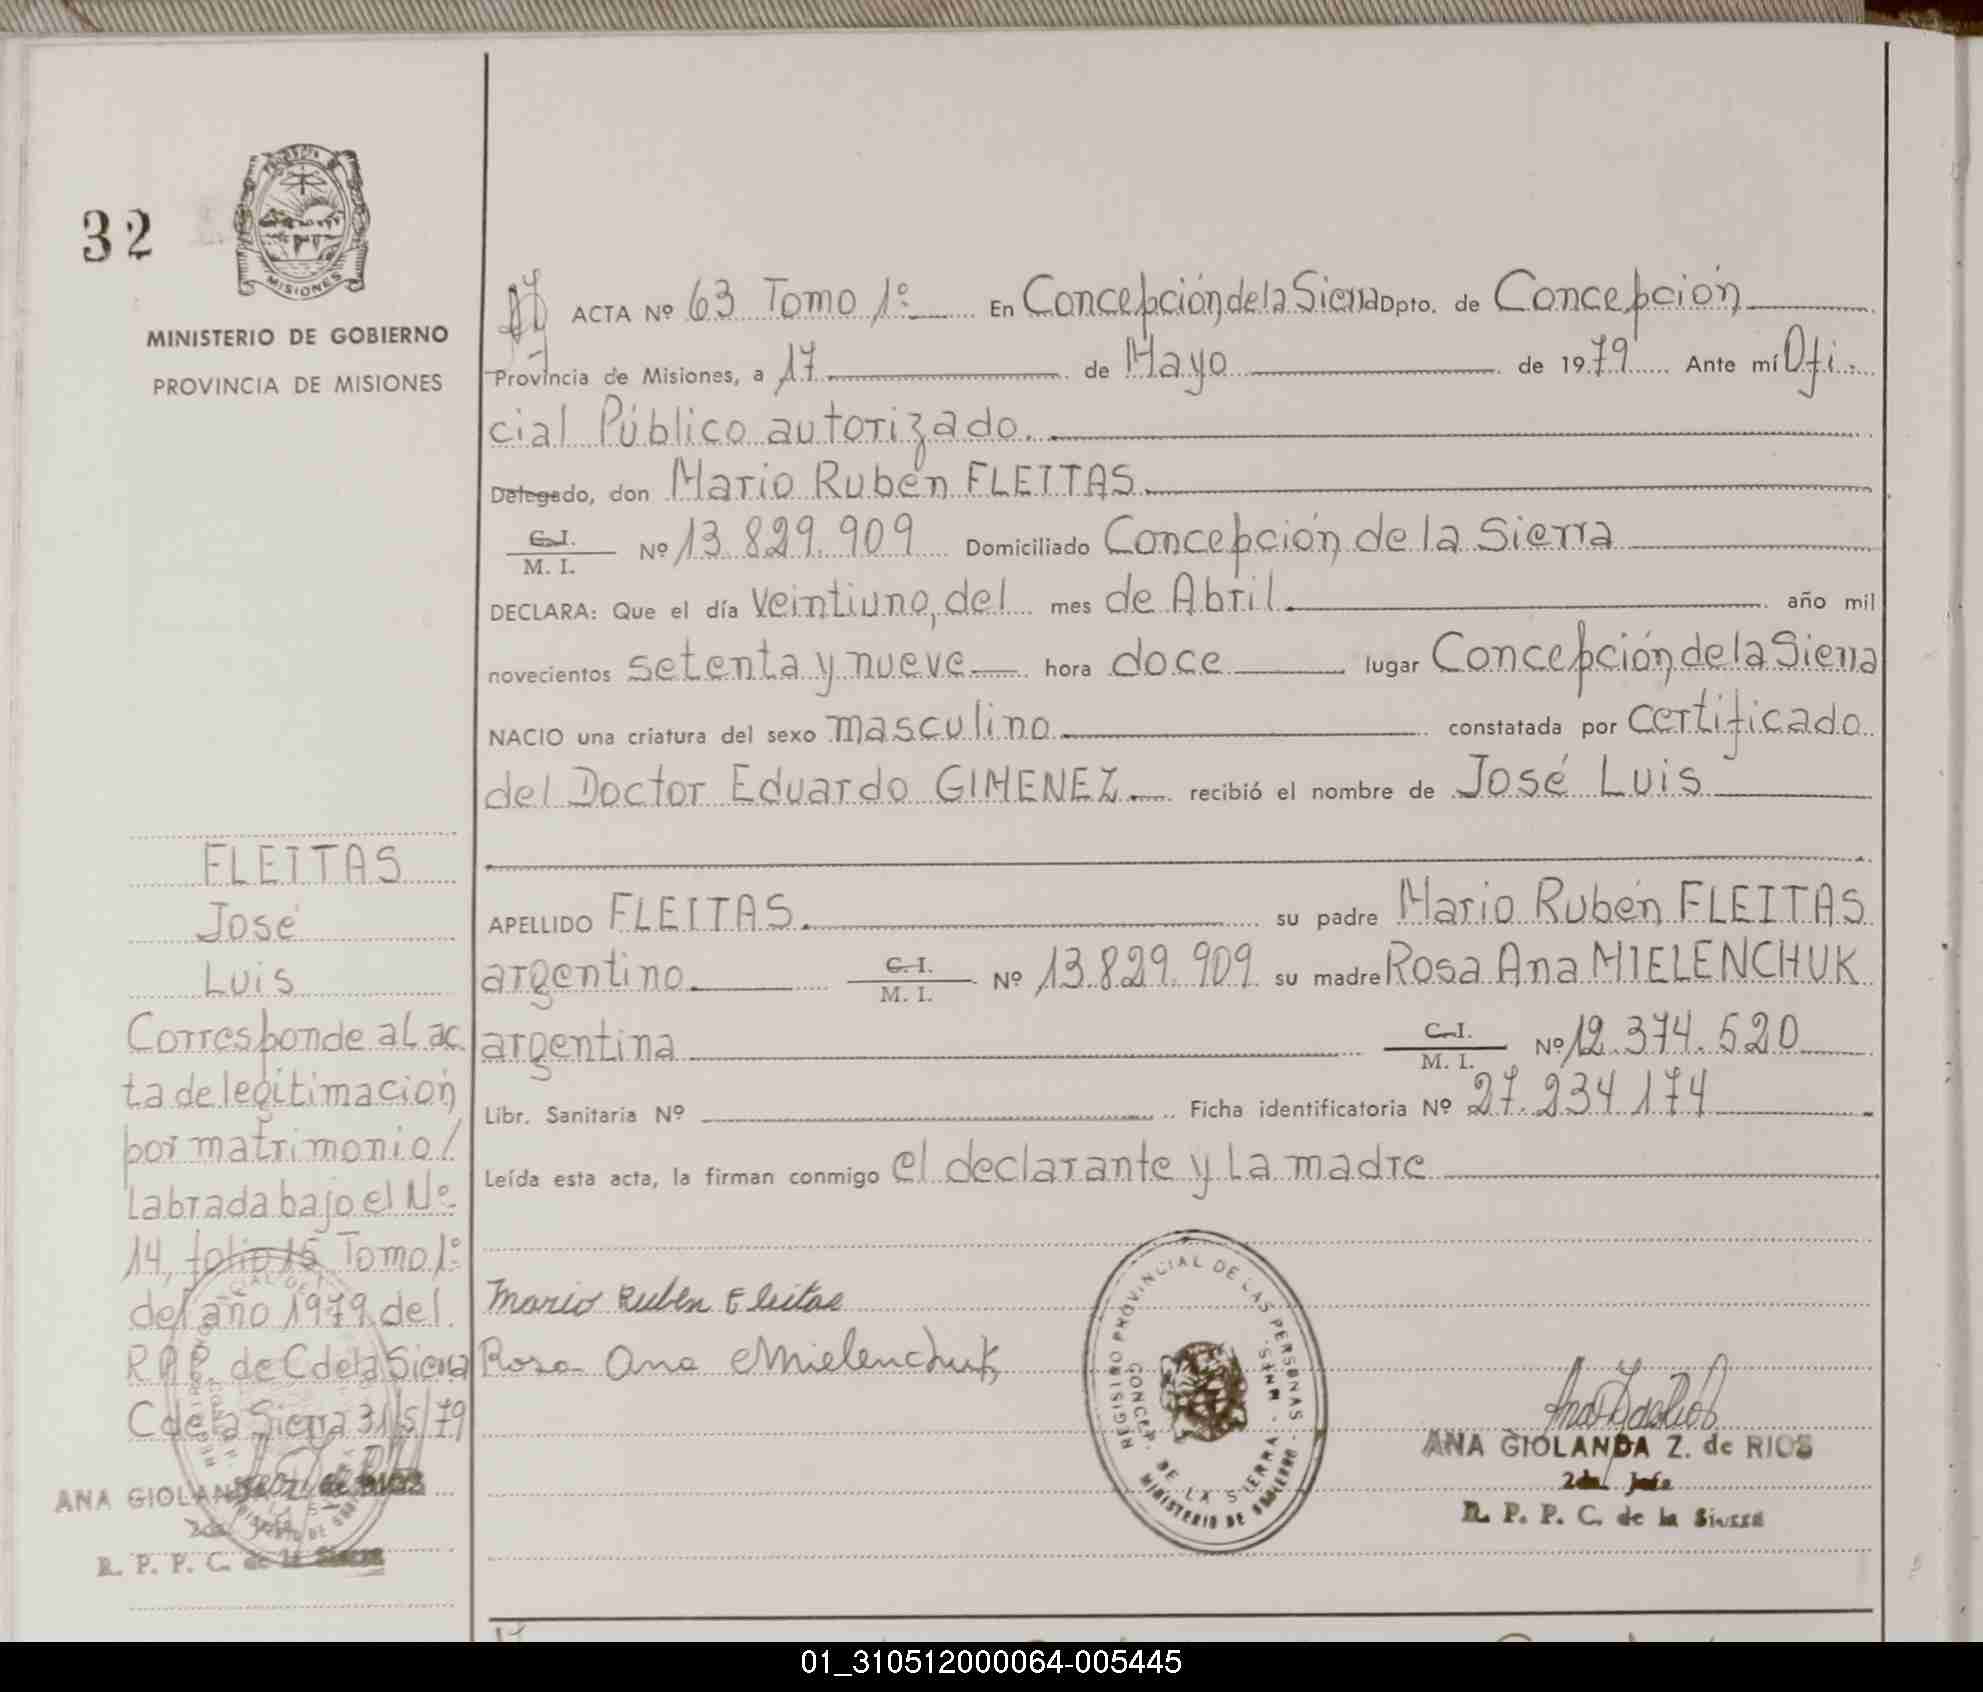 32
PROVINCIA DE
MISIONES
MINISTERIO DE GOBIERNO
PROVINCIA DE MISIONES
ACTA Nº 63 Tomo 1º En Concepción de la Sierra Dpto. de Concepción
Provincia de Misiones, a 17 de Mayo de 1979 Ante mí Ofi-
cial Público autorizado.
Delegado, don Mario Rubén FLEITAS.
C.I.
M. I. Nº 13.829.909 Domiciliado Concepción de la Sierra
DECLARA: Que el día veintiuno, del mes de Abril. año mil
novecientos setenta y nueve hora doce lugar Concepción de la Sierra
NACIO una criatura del sexo masculino constatada por certificado
del Doctor Eduardo GIMENEZ. recibió el nombre de José Luis
APELLIDO FLEITAS. su padre Mario Rubén FLEITAS
argentino. C. I.
M. I. Nº 13.829.909 su madre Rosa Ana MIELENCHUK
argentina C.I.
M. I. Nº 12.374.520
Libr. Sanitaria Nº Ficha identificatoria Nº 27.234.174
Leída esta acta, la firman conmigo el declarante y la madre
Mario Rubén Fleitas
Rosa Ana Mielenchuk
REGISTRO PROVINCIAL DE LAS PERSONAS
CONCEP. DE LA SIERRA - MNES.
MINISTERIO DE GOBIERNO
ANA GIOLANDA Z. de RIOS
2da. Jefe
R. P. P. C. de la Sierra
FLEITAS
José
Luis
Corresponde al ac
ta de legitimación
por matrimonio/.
labrada bajo el Nº
14, folio 15 Tomo 1º
del año 1979, del.
R.P.P. de C de la Sierra
C de la Sierra 31/5/79
ANA GIOLANDA Z. de RIOS
2da. Jefe
R. P. P. C. de la Sierra
01_310512000064-005445